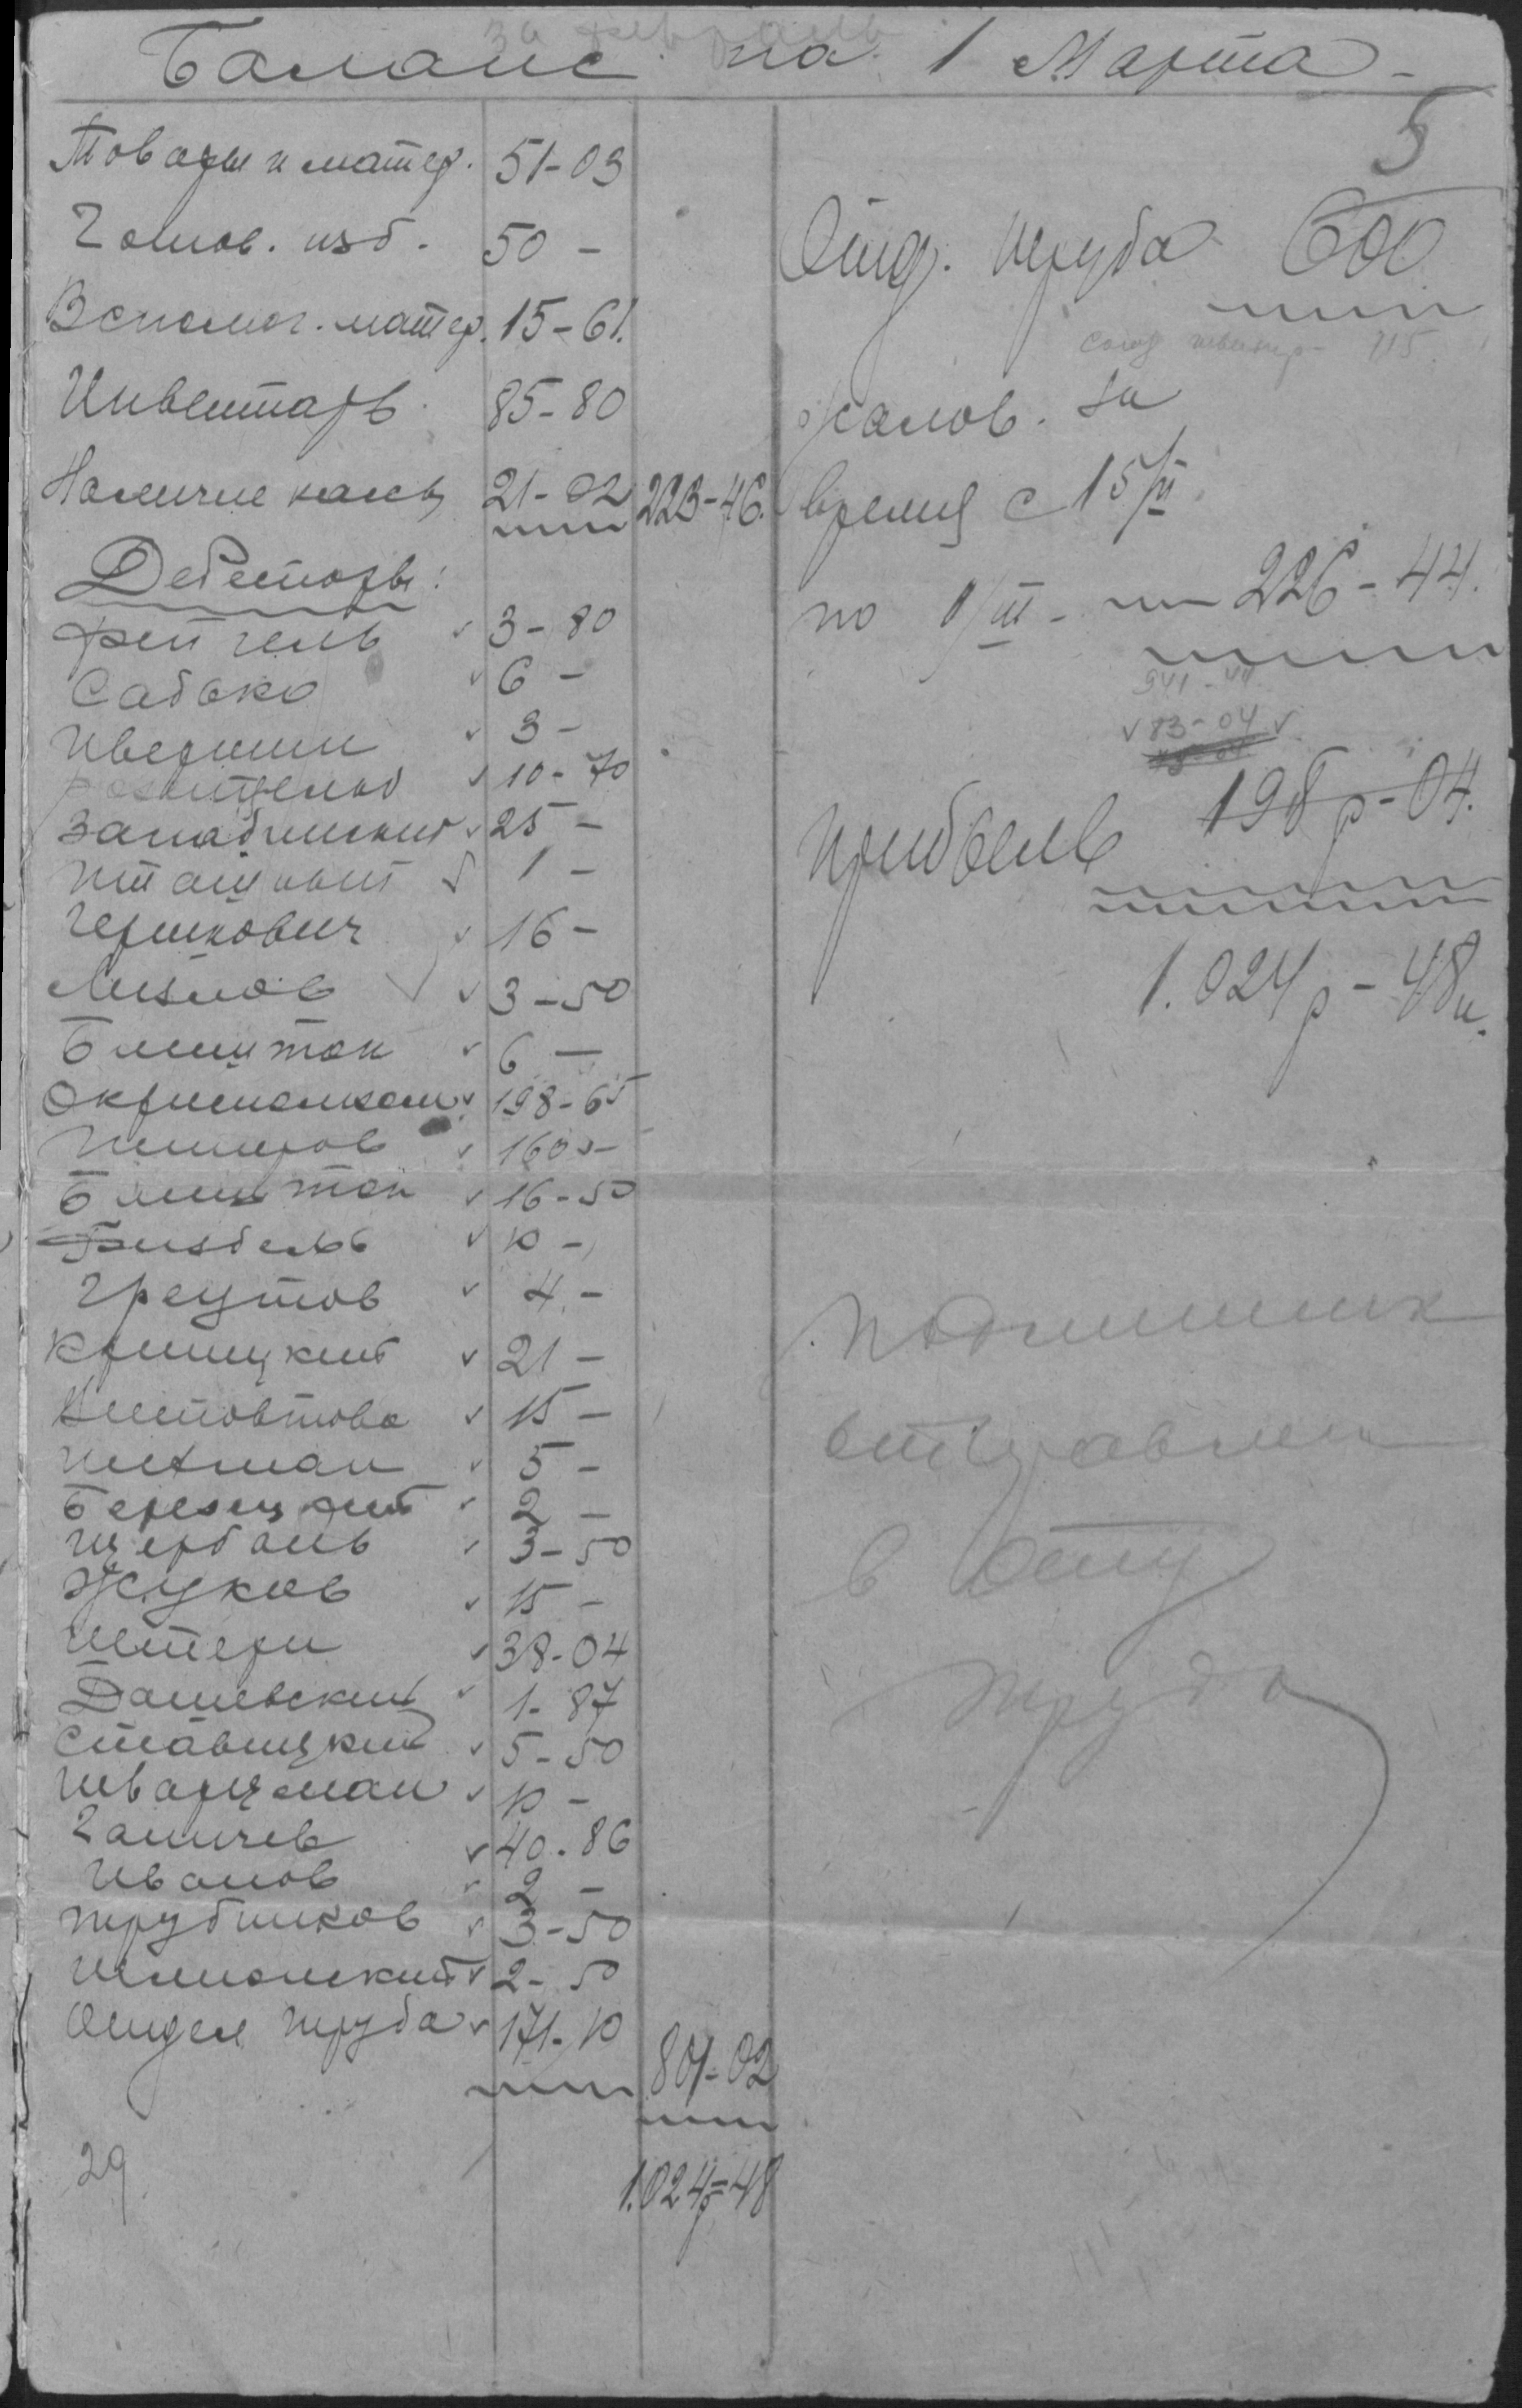 за февраль
Баланс на 1 Марта -
5
Товары и матер. 51-03
Готов. изд. 50 -
Вспомог. матер. 15-61.
Инвентарь 85-80
Наличие кассы 21-02 223-46.
Дебеторы:
Фейгель 3-80
Садько 6 -
3 -
10-70
Западинский 25 -
1 -
Гершкович 16 -
Лизнов 3-50
Блинштон 6 -
198-65
160 -
Блинштон 16-50
10 -
Греутов 4. -
Криницкий 21 -
15 -
5 -
Березецкий 2 -
Щербань 3-50
Жуков 15 -
Штерн 38-04
Дашевский 1-87
Ставицкий 5-50
Шварцман 10 -
Галичев 40-86
Иванов 2 -
Трубников 3-50
2-50
Отдел труда 171-10 801-02
1.024р-48
29
Отд. труда 600
союз 115.
жалов. за
время с 15/II
по 1/III - 226-44.
941-44
83-04
Прибыль 198р-04.
1.024р-48к.
Подлинник
отправлен
в Отд
труда